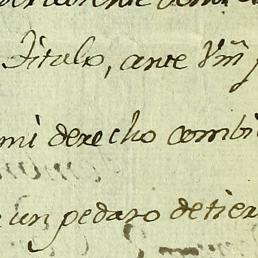 Titulo, ante Vm̃
mi derecho combi
un pedaro detier